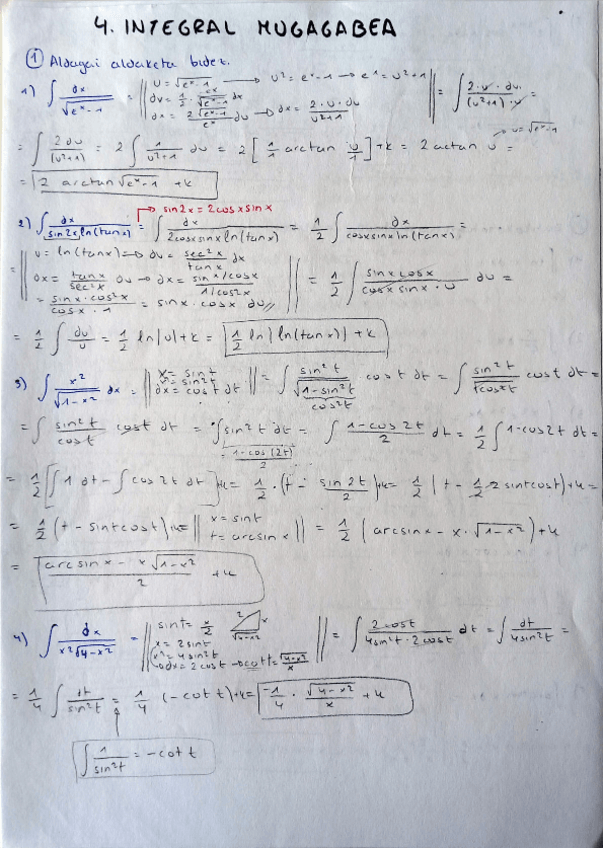 4. INTEGRAL MUGAGABEA
① Aldagai aldaketa bidez.
1) ∫ dx/√(eˣ-1) = || u = √(eˣ-1) → u² = eˣ-1 → eˣ = u²+1 || = ∫ 2·u·du/((u²+1)·u) =
du = 1/2 · eˣ/√(eˣ-1) dx
dx = 2√(eˣ-1)/eˣ du → dx = 2·u·du/(u²+1)
= ∫ 2du/(u²+1) = 2 ∫ 1/(u²+1) du = 2 [1/1 arctan u/1] + k = 2 actan u =
u = √(eˣ-1)
= 2 arctan √(eˣ-1) + k
→ sin2x = 2cosx sinx
2) ∫ dx/(sin2x ln(tanx)) = ∫ dx/(2cosxsinx ln(tanx)) = 1/2 ∫ dx/(cosxsinx ln(tanx)) =
= || u = ln(tanx) → du = sec²x/tanx dx
dx = tanx/sec²x du → dx = (sinx/cosx)/(1/cos²x)
= sinx·cos²x/(cosx·1) = sinx·cosx du || = 1/2 ∫ sinx cosx/(cosx sinx·u) du =
= 1/2 ∫ du/u = 1/2 ln|u| + k = 1/2 ln|ln(tanx)| + k
3) ∫ x²/√(1-x²) dx = || x = sint || = ∫ sin²t/√(1-sin²t) cost dt = ∫ sin²t/√cos²t cost dt =
x² = sin²t
dx = cost dt
cos²t
= ∫ sin²t/cost cost dt = ∫ sin²t dt = ∫ (1-cos2t)/2 dt = 1/2 ∫ 1-cos2t dt =
= (1-cos(2t))/2
= 1/2 [∫ 1 dt - ∫ cos2t dt] + k = 1/2 · (t - sin2t/2) + k = 1/2 (t - 1/2 2sintcost) + k =
= 1/2 (t - sintcost) + k = || x = sint || = 1/2 (arcsinx - x·√(1-x²)) + k
t = arcsinx
= (arcsinx - x√(1-x²))/2 + k
4) ∫ dx/(x²√(4-x²)) = || sint = x/2 || = ∫ 2cost/(4sin²t·2cost) dt = ∫ dt/(4sin²t) =
2 x √(4-x²)
x = 2sint
x² = 4sin²t
dx = 2cost → cott = √(4-x²)/x
= 1/4 ∫ dt/sin²t = 1/4 (-cott) + k = -1/4 · √(4-x²)/x + k
∫ 1/sin²t = -cot t